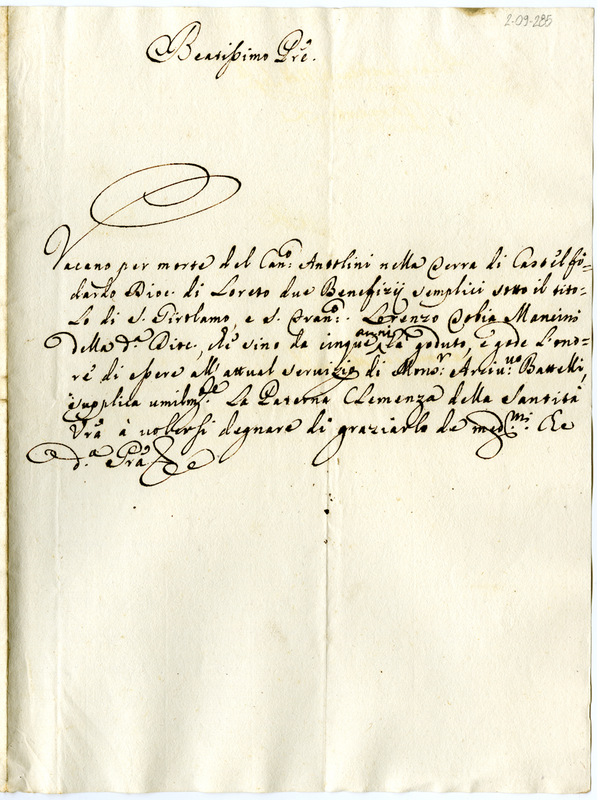 2-09-285
Beatissimo Pre.
Vacano per morte del Can: Antolini nella Terra di Castel fi=
dardo Dioc. di Loreto due Benefizij semplici sotto il tito=
lo di S. Girolamo, e S. Fran: Lorenzo Mancini
della d.a Dioc., che sino da cinque anni hà goduto, e gode l'ono=
re di essere all'attual servizio di Mons.r Arciv: Battelli,
supplica umilm.te la Paterna Clemenza della Santità
Vra à volersi degnare di graziarlo de med.mi Che
d.a Gra